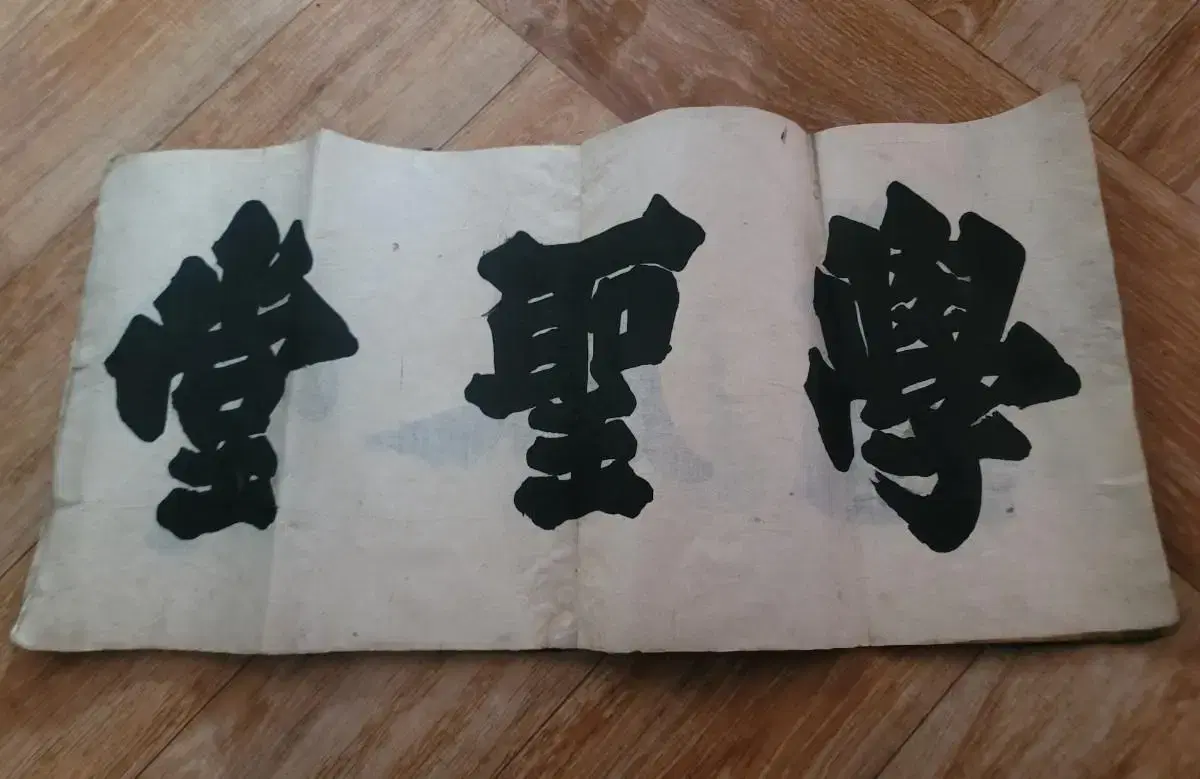 學聖堂